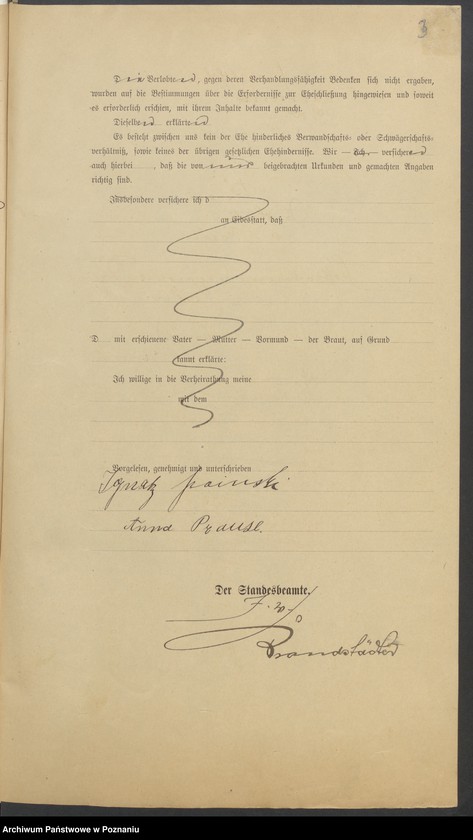 3
Die Verlobten, gegen deren Verhandlungsfähigkeit Bedenken sich nicht ergaben,
wurden auf die Bestimmungen über die Erfordernisse zur Eheschließung hingewiesen und soweit
es erforderlich erschien, mit ihrem Inhalte bekannt gemacht.
Dieselben erklärten
Es besteht zwischen uns kein der Ehe hinderliches Verwandschafts- oder Schwägerschafts-
verhältniß, sowie keines der übrigen gesetzlichen Ehehindernisse. Wir — Ich — versichern
auch hierbei, daß die von uns beigebrachten Urkunden und gemachten Angaben
richtig sind.
Insbesondere versichere ich d
an Eidesstatt, daß
D mit erschienene Vater — Mutter — Vormund — der Braut, auf Grund
kannt erklärte:
Ich willige in die Verheirathung meine
mit dem
Vorgelesen, genehmigt und unterschrieben
Ignatz
Anna Prause.
Der Standesbeamte.
Brandstädter
Archiwum Państwowe w Poznaniu